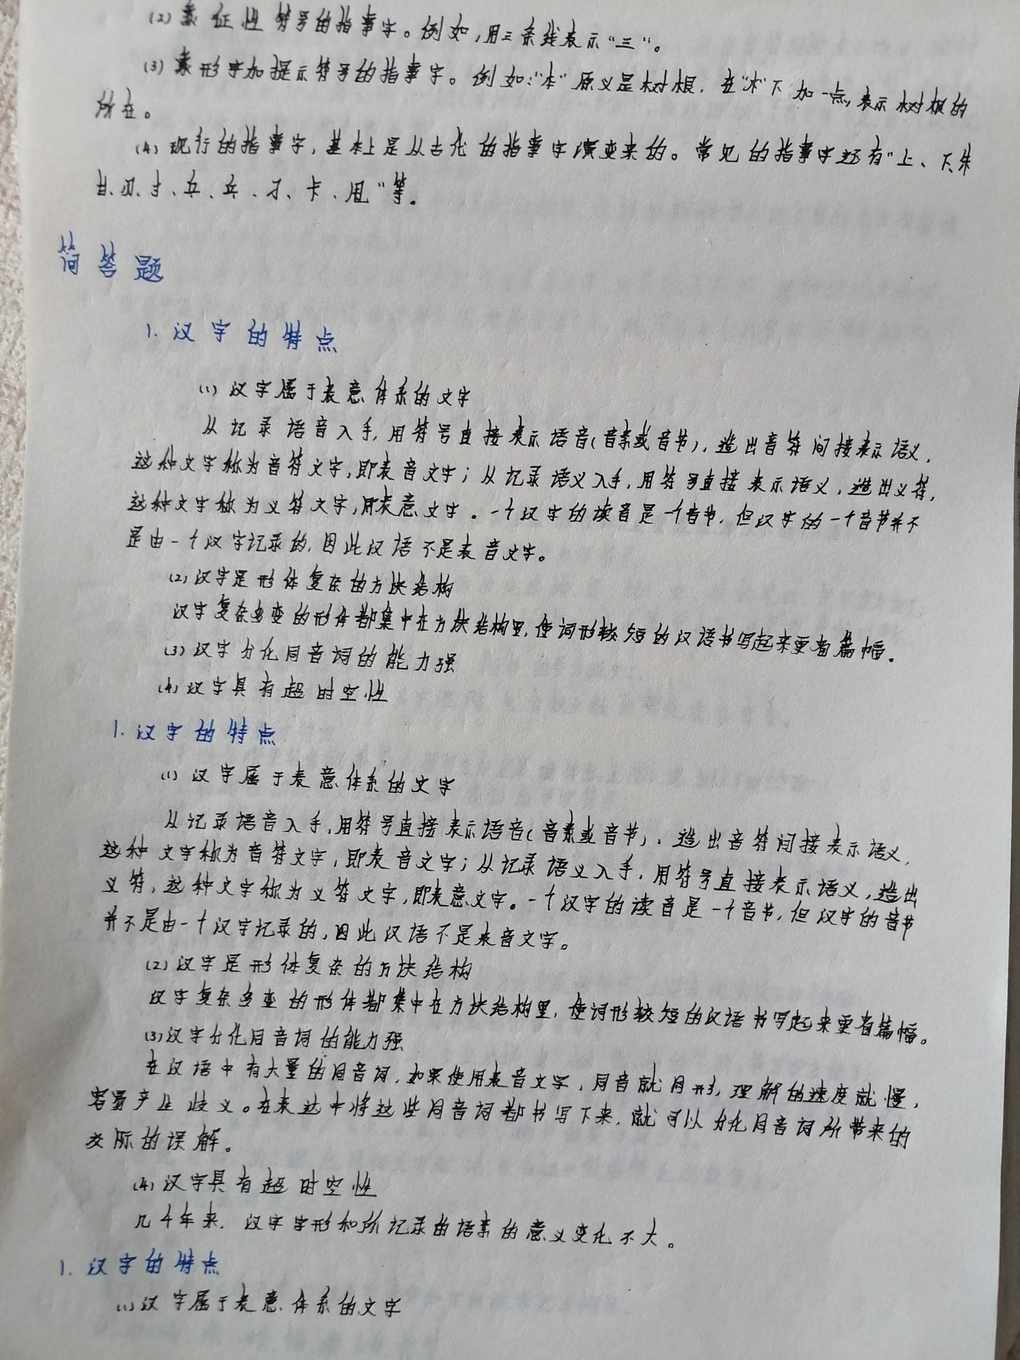 (2) 象征性符号的指事字。例如,用三条线表示“三”。
(3) 象形字加提示符号的指事字。例如:“本”原义是树根,在“木”下加一点,表示树根的
所在。
(4) 现行的指事字,基本上是从古代的指事字演变来的。常见的指事字还有“上、下、朱
、刃、寸、立、兵、才、卡、甩”等。
简答题
1. 汉字的特点
(1) 汉字属于表意体系的文字
从记录语音入手,用符号直接表示语音(音素或音节),造出音符间接表示语义,
这种文字称为音符文字,即表音文字;从记录语义入手,用符号直接表示语义,造出义符,
这种文字称为义符文字,即表意文字。一个汉字的读音是一个音节,但汉字的一个音节并不
是由一个汉字记录的,因此汉语不是表音文字。
(2) 汉字是形体复杂的方块结构
汉字复杂多变的形体都集中在方块结构里,使词形较短的汉语书写起来更省篇幅。
(3) 汉字分化同音词的能力强
(4) 汉字具有超时空性
1. 汉字的特点
(1) 汉字属于表意体系的文字
从记录语音入手,用符号直接表示语音(音素或音节),造出音符间接表示语义,
这种文字称为音符文字,即表音文字;从记录语义入手,用符号直接表示语义,造出
义符,这种文字称为义符文字,即表意文字。一个汉字的读音是一个音节,但汉字的音节
并不是由一个汉字记录的,因此汉语不是表音文字。
(2) 汉字是形体复杂的方块结构
汉字复杂多变的形体都集中在方块结构里,使词形较短的汉语书写起来更省篇幅。
(3) 汉字分化同音词的能力强
在汉语中有大量的同音词,如果使用表音文字,同音就同形,理解的速度就慢,
容易产生歧义。在表达中将这些同音词都书写下来,就可以分化同音词所带来的
交际的误解。
(4) 汉字具有超时空性
几千年来,汉字字形和所记录的语素的意义变化不大。
1. 汉字的特点
(1) 汉字属于表意体系的文字